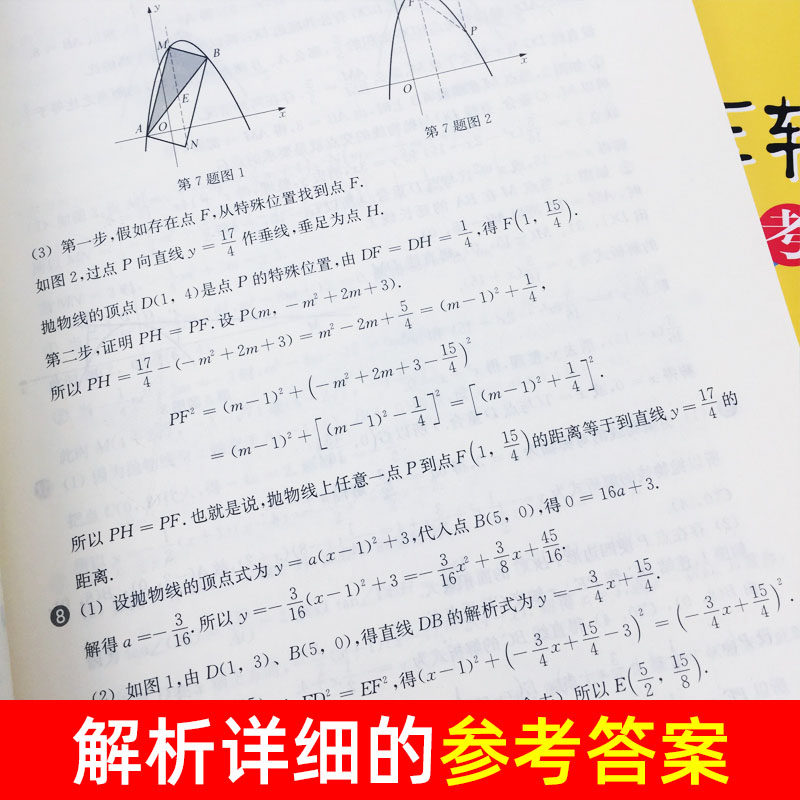 y
M
B
E
A
O
N
x
第 7 题图 1
F
P
O
x
第 7 题图 2
(3) 第一步,假如存在点 F,从特殊位置找到点 F.
如图 2,过点 P 向直线 y = 17/4 作垂线,垂足为点 H.
抛物线的顶点 D(1, 4)是点 P 的特殊位置,由 DF = DH = 1/4,得 F(1, 15/4).
第二步,证明 PH = PF. 设 P(m, −m² + 2m + 3).
所以 PH = 17/4 − (−m² + 2m + 3) = m² − 2m + 5/4 = (m−1)² + 1/4,
PF² = (m−1)² + (−m² + 2m + 3 − 15/4)²
= (m−1)² + [(m−1)² − 1/4]² = [(m−1)² + 1/4]².
所以 PH = PF. 也就是说,抛物线上任意一点 P 到点 F(1, 15/4)的距离等于到直线 y = 17/4 的
距离.
8 (1) 设抛物线的顶点式为 y = a(x−1)² + 3,代入点 B(5, 0),得 0 = 16a + 3.
解得 a = −3/16. 所以 y = −3/16(x−1)² + 3 = −3/16x² + 3/8x + 45/16.
(2) 如图 1,由 D(1, 3)、B(5, 0),得直线 DB 的解析式为 y = −3/4x + 15/4.
ED² = EF²,得(x−1)² + (−3/4x + 15/4 − 3)² = (−3/4x + 15/4)².
所以 E(5/2, 15/8).
解析详细的参考答案